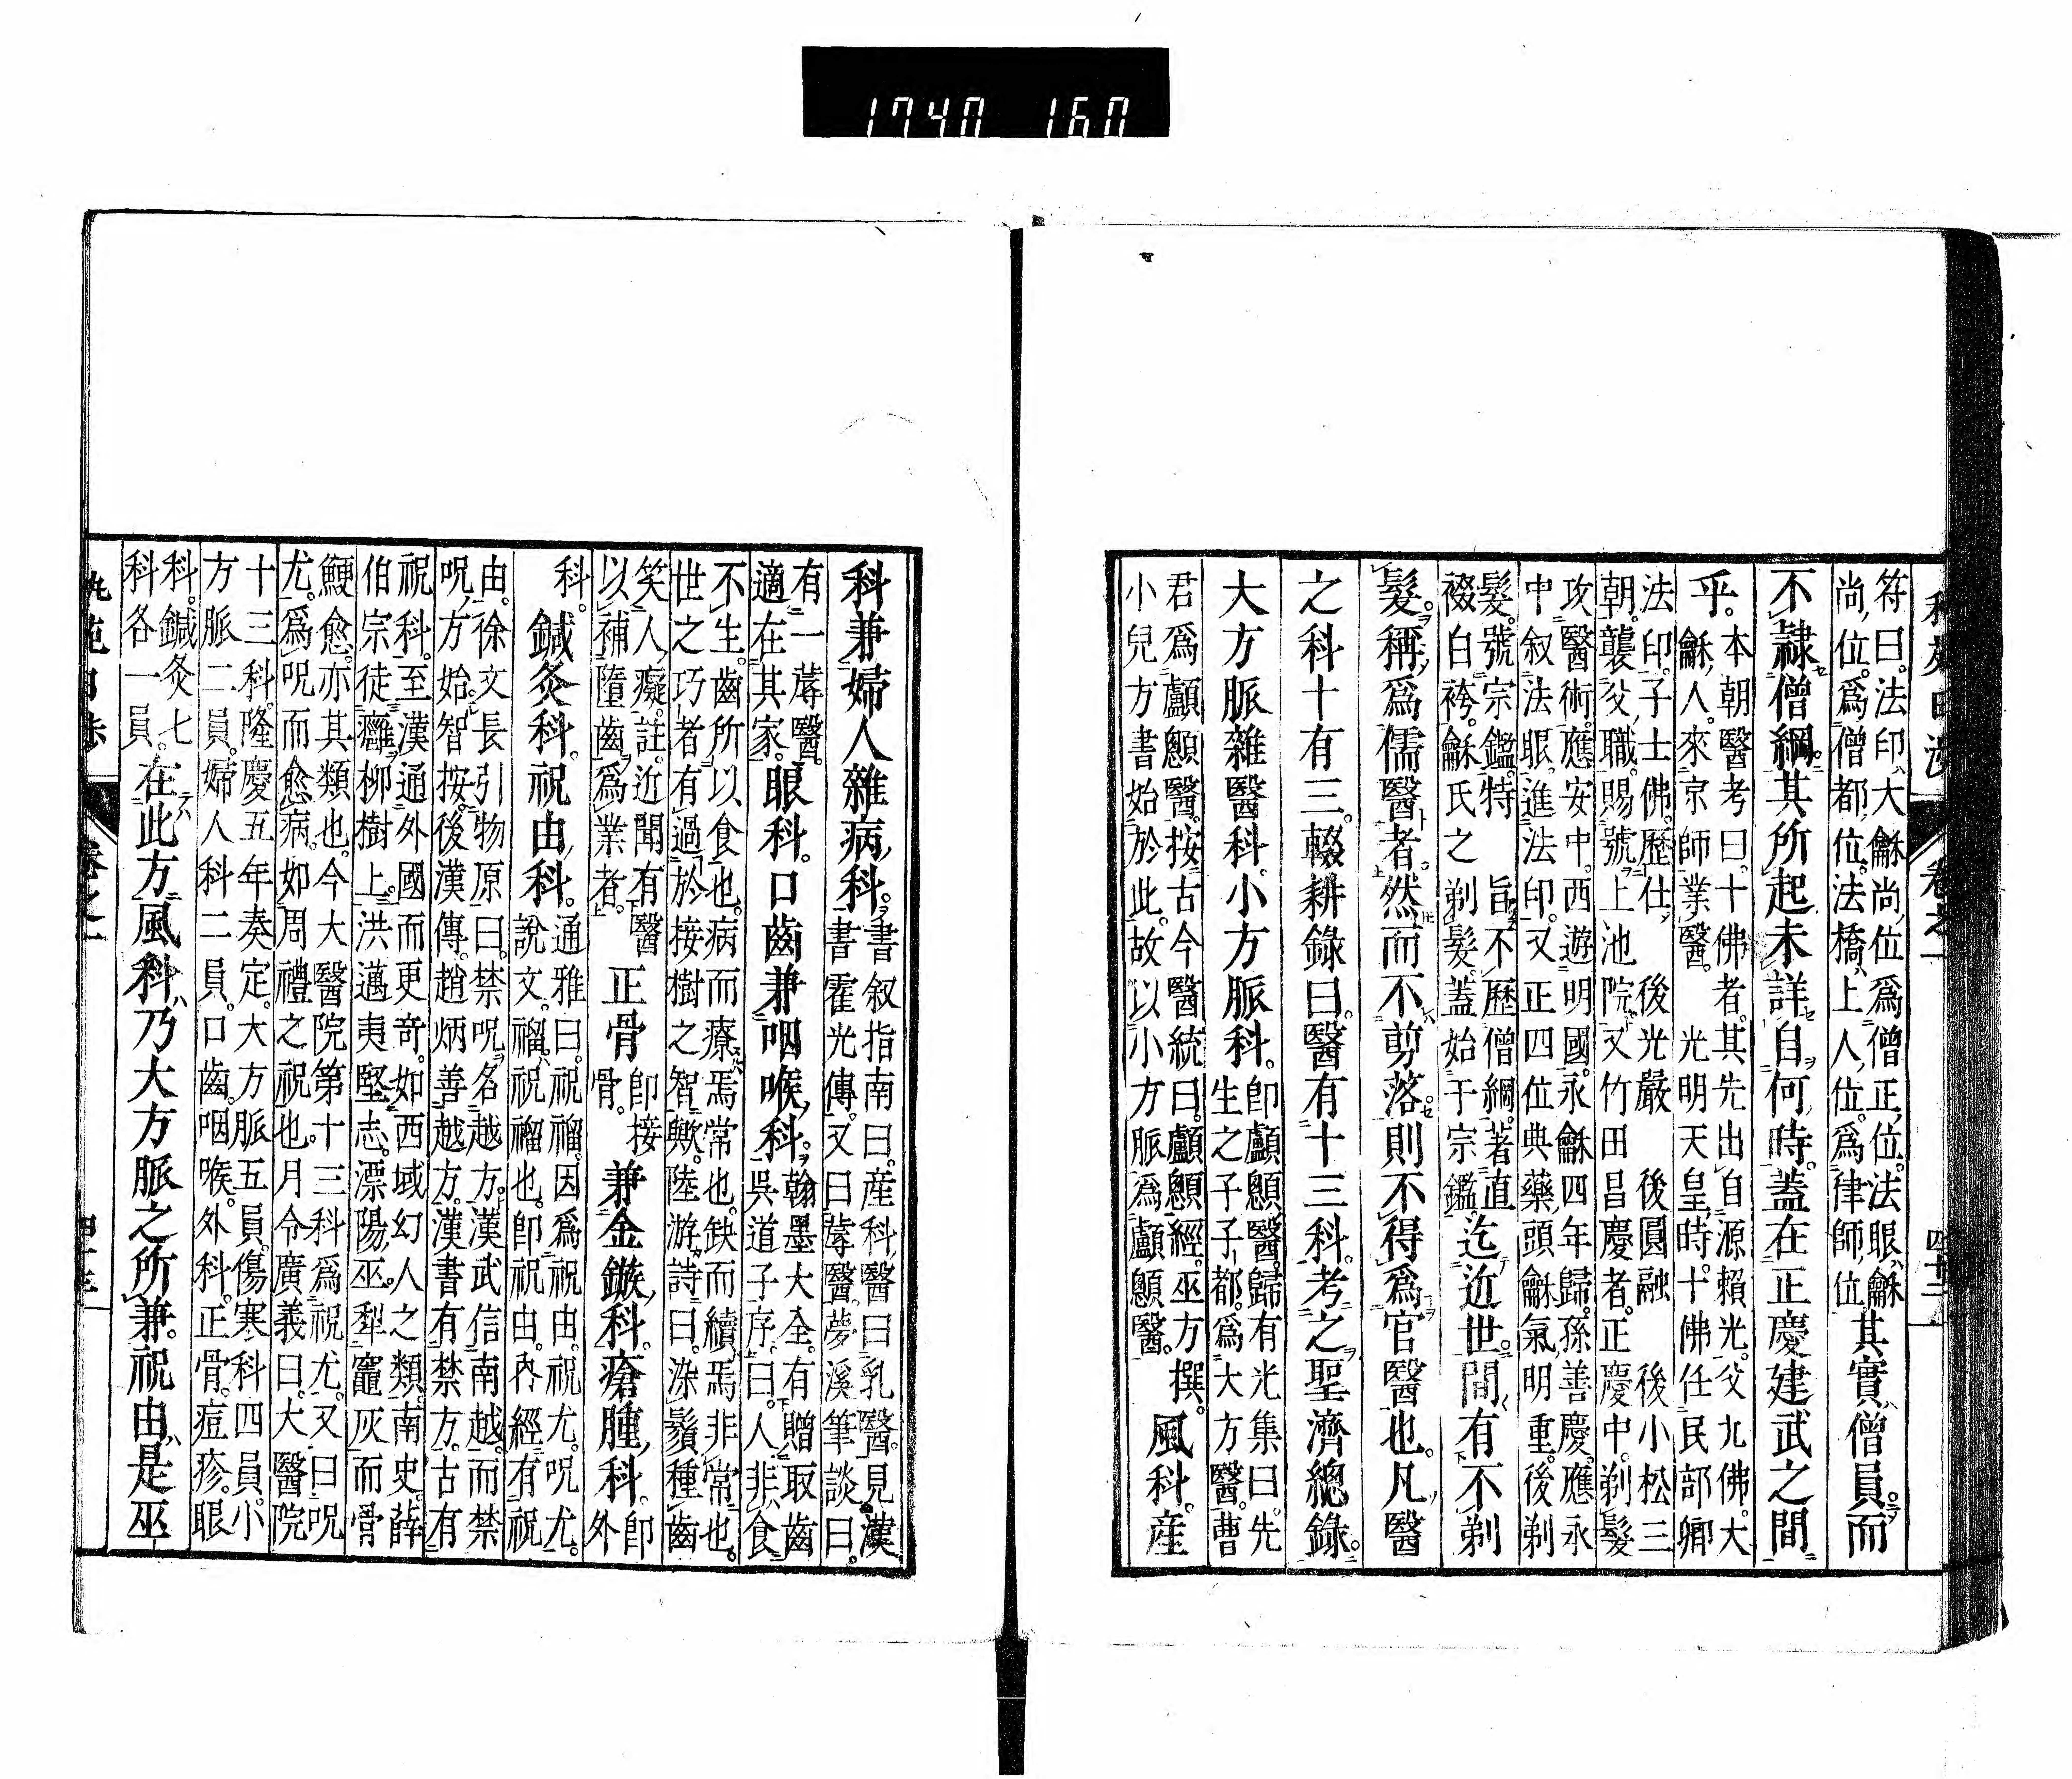 1740 160
符曰。法印、大龢尚、位爲僧正位。法眼、龢
尚、位。爲僧都、位。法橋、上人、位。爲律師、位
其實、僧員。而
不隷僧綱。其所起未詳自何時。蓋在正慶建武之間
乎。
本朝醫考曰。十佛者。其先出自源賴光。父九佛。大
龢人。來京師業醫。光明天皇時。十佛任民部卿
法印。子士佛。歷仕後光嚴後圓融後小松三
朝。襲父職。賜號上池院。又竹田昌慶者。正慶中。剃髮
攻醫術。應安中。西遊明國。永龢四年歸。孫善慶。應永
中叙法眼。進法印。又正四位典藥頭龢氣明重。後剃
髮。號宗鑑。特旨不歷僧綱。著直
裰白袴。龢氏之剃髮。蓋始于宗鑑。
迄近世。間有不剃
髮。稱爲儒醫者。然而不剪落。則不得爲官醫也。凡醫
之科十有三。輟耕錄曰。醫有十三科。考之聖濟總錄。
大方脈雜醫科。小方脈科。
卽顱顖醫。歸有光集曰。先
生之子子都。爲大方醫。曹
君爲顱顖醫。按古今醫統曰。顱顖經。巫方撰。
小兒方書始於此。故以小方脈爲顱顖醫。
風科。産
卷之一
四十二
科兼婦人雜病科。
書叙指南曰。産科、醫曰乳醫。見漢
書霍光傳。又曰蓐醫。夢溪筆談曰。
有一蓐醫。
適在其家。
眼科。口齒兼咽喉科。
翰墨大全。有贈取齒
吳道子序。曰。人非食
不生。齒所以食也。病而療焉常也。缺而續焉非常也。
世之巧者有過於接樹之智歟。陸游詩曰。染鬚種齒
笑人癡。註。近聞有醫
以補墮齒爲業者。
正骨
卽接
骨。
兼金鏃科。瘡腫科。
卽外
科。
鍼灸科。祝由科。
通雅曰。祝褔。因爲祝由。祝尤。呪尤。
說文。褔、祝褔也。卽祝由。內經有祝
由。徐文長引物原曰。禁呪名越方。漢武信南越。而禁
呪方始。智按。後漢傳。趙炳善越方。漢書有禁方。古有
祝科。至漢通外國而更奇。如西域幻人之類。南史。薛
伯宗徒癰柳樹上。洪邁夷堅志。漂陽巫。犁竈灰而骨
鯁愈。亦其類也。今大醫院第十三科爲祝尤。又曰呪
尤。爲呪而愈病。如周禮之祝也。月令廣義曰。大醫院
十三科。隆慶五年奏定。大方脈五員。傷寒科四員。小
方脈二員。婦人科二員。口齒。咽喉。外科。正骨。痘疹。眼
科。鍼灸七
科各一員。
在此方風科、乃大方脈之所兼。祝由、是巫
卷之一